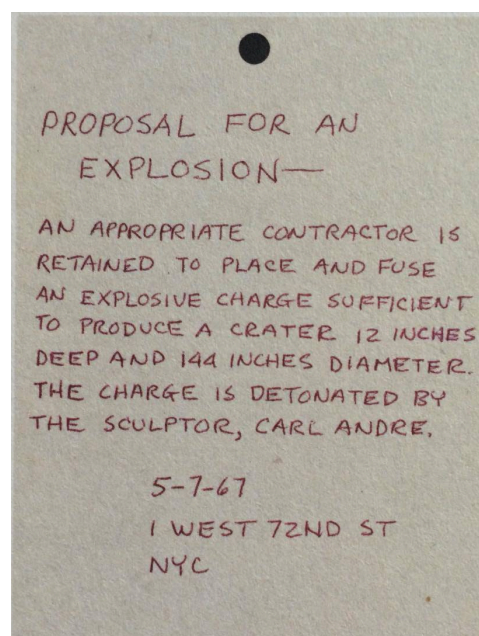 PROPOSAL FOR AN
EXPLOSION—
AN APPROPRIATE CONTRACTOR IS
RETAINED TO PLACE AND FUSE
AN EXPLOSIVE CHARGE SUFFICIENT
TO PRODUCE A CRATER 12 INCHES
DEEP AND 144 INCHES DIAMETER.
THE CHARGE IS DETONATED BY
THE SCULPTOR, CARL ANDRE.
5-7-67
1 WEST 72ND ST
NYC